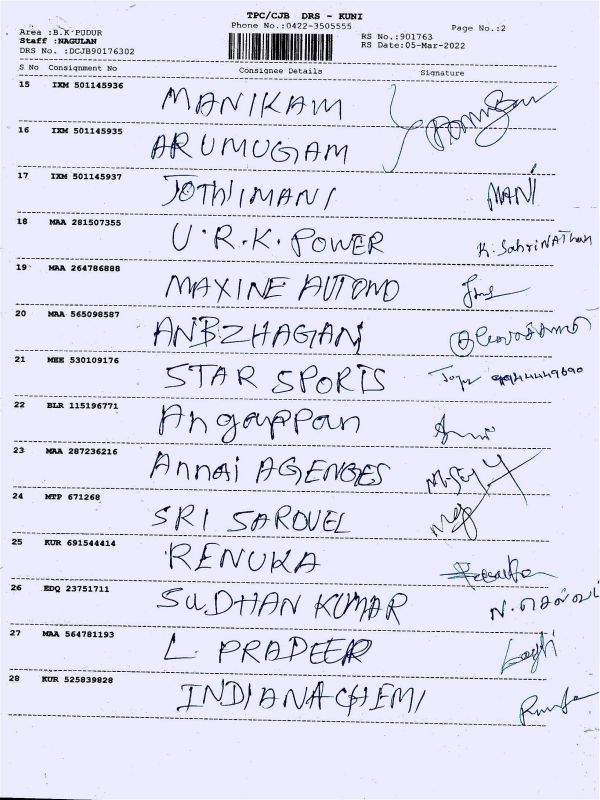 TPC/CJB DRS - KUNI
Phone No.:0422-3505555
Page No.:2
Area :B.K PUDUR
Staff :NAGULAN
DRS No. :DCJB90176302
RS No.:901763
RS Date:05-Mar-2022
S No Consignment No Consignee Details Signature
15 IXM 501145936 MANIKAM
16 IXM 501145935 ARUMUGAM
17 IXM 501145937 JOTHIMANI MANI
18 MAA 281507355 U.R.K. POWER K. SabriNAThan
19 MAA 264786888 MAXINE AUTOMO
20 MAA 565098587 ANBZHAGAN
21 MEE 530109176 STAR SPORTS
22 BLR 115196771 Angappan
23 MAA 287236216 Annai AGENCIES
24 MTP 671268 SRI
25 KUR 691544414 RENUKA
26 EDQ 23751711 SUDHAN KUMAR
27 MAA 564781193 L. PRADEER
28 KUR 525839828 INDIANACHEMI